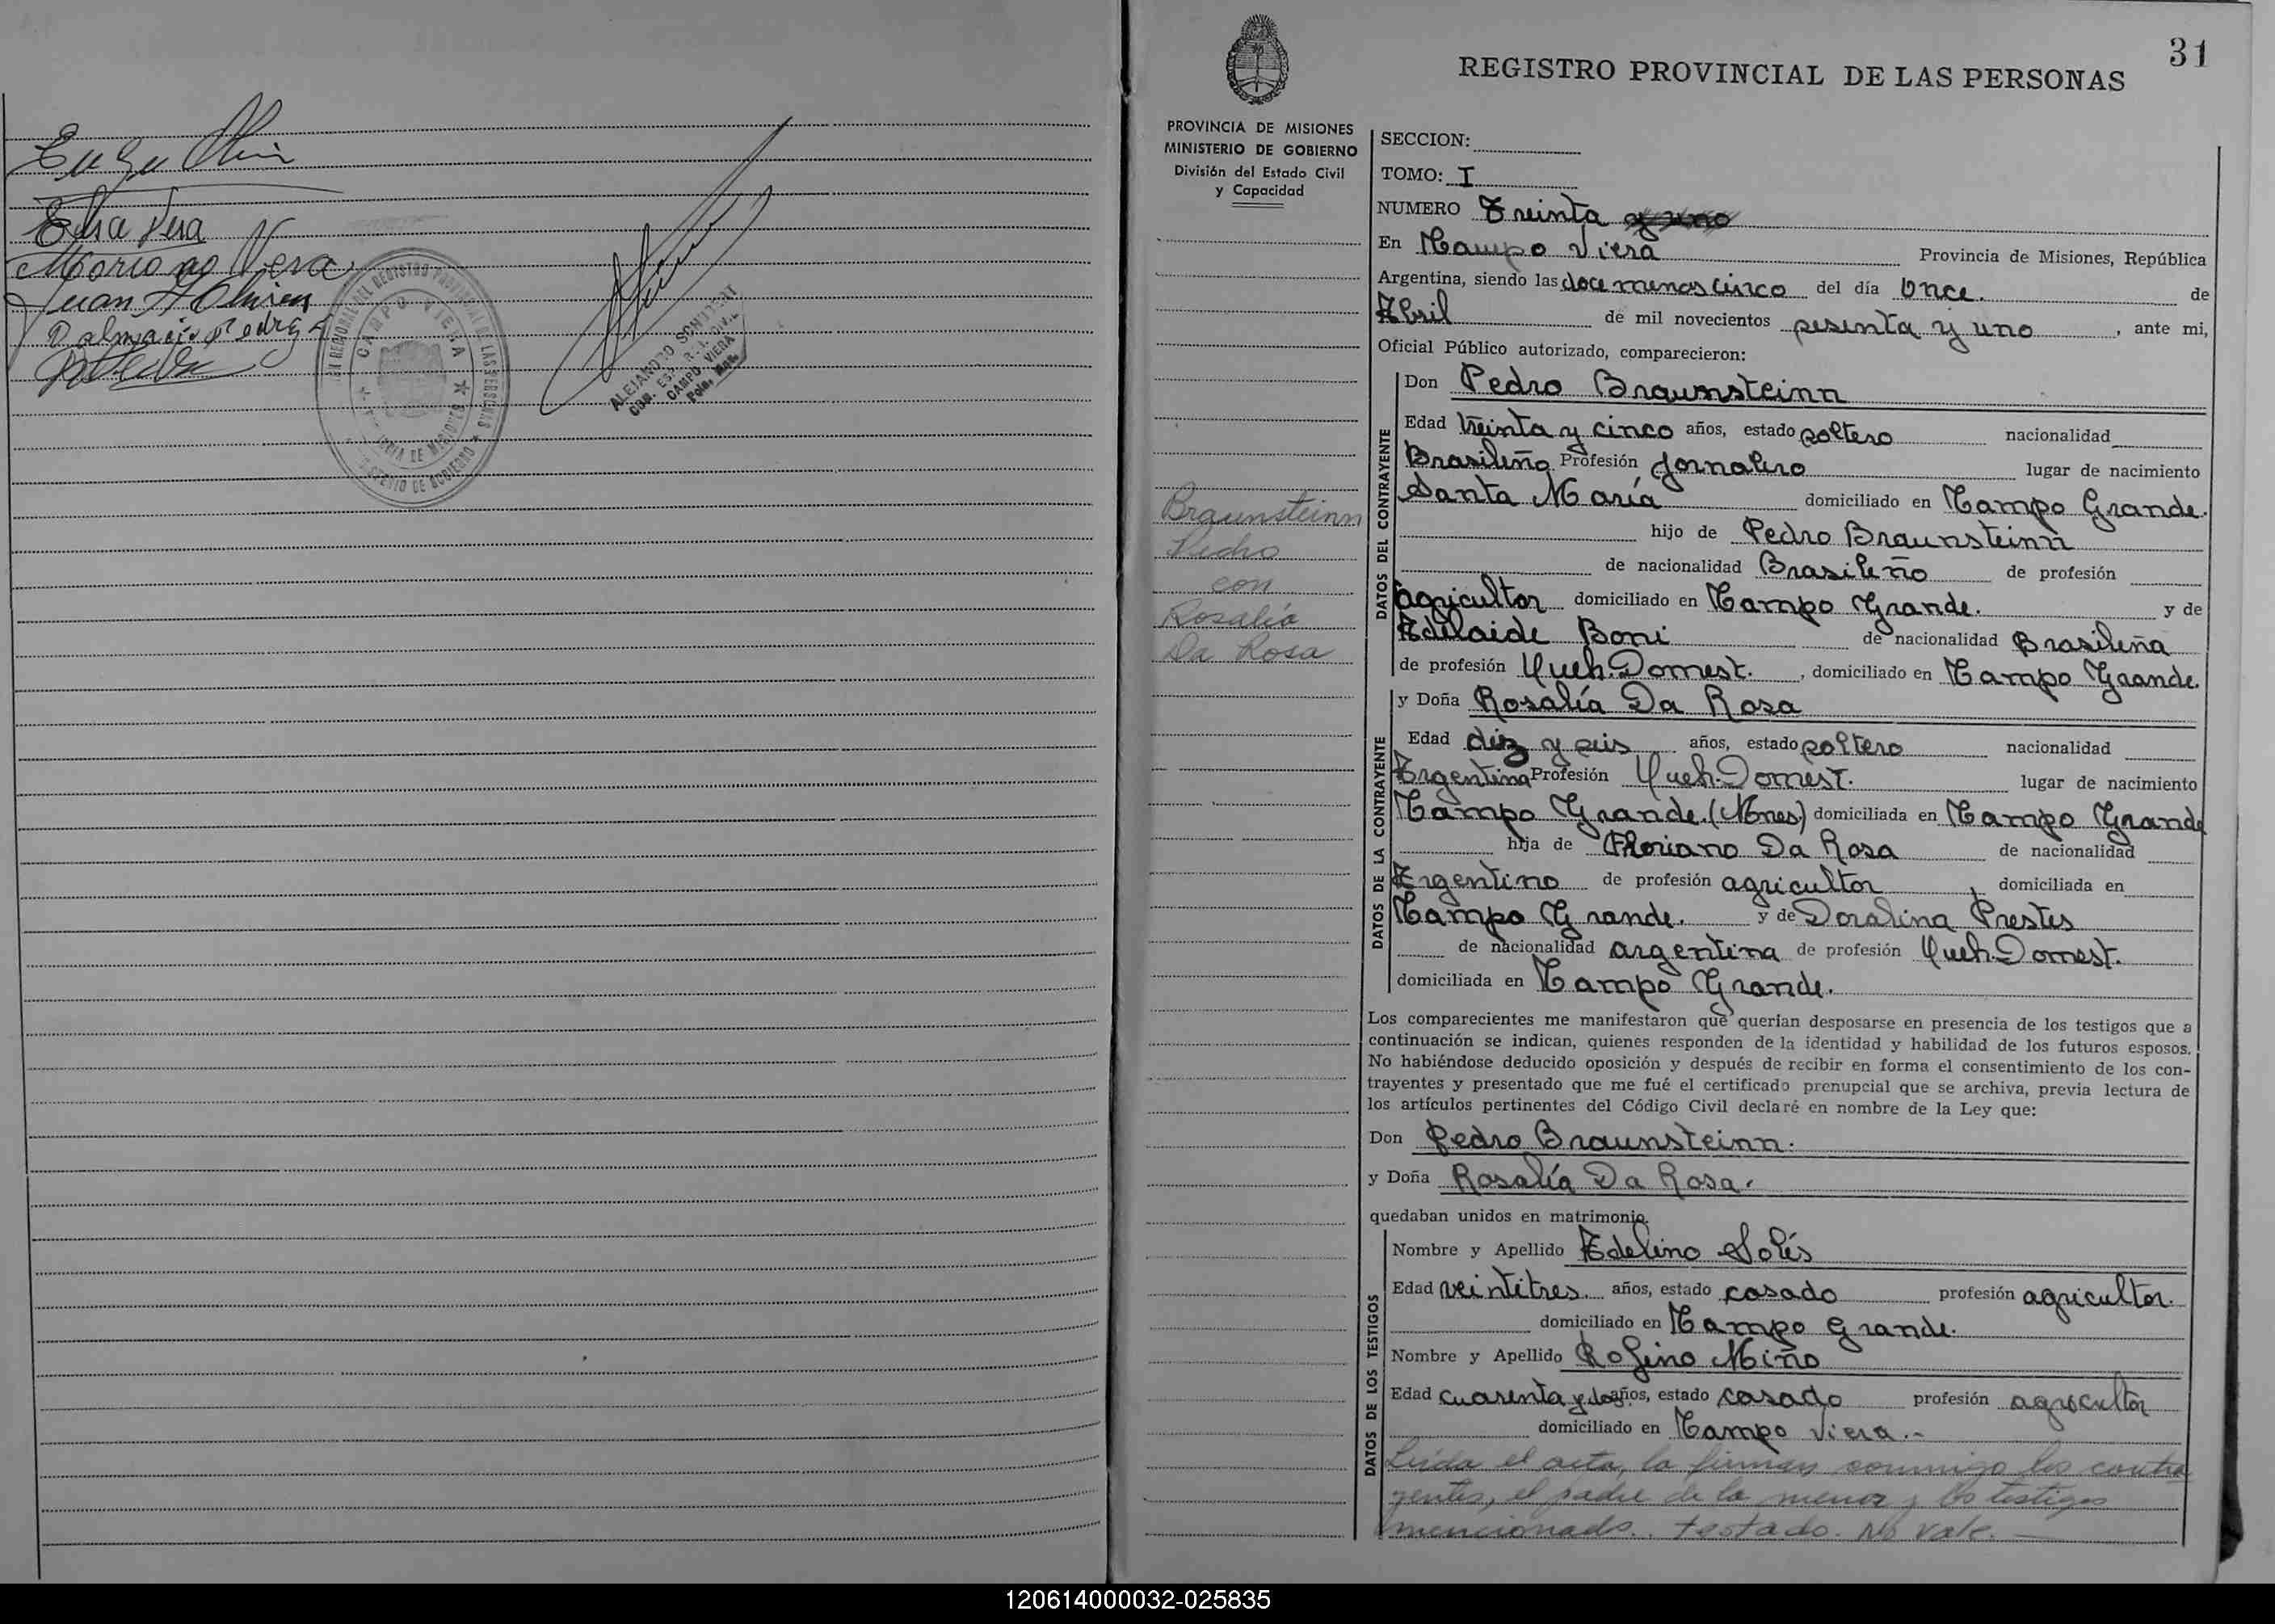 Elsa Vera
Mariano Vera
Juan
Dalmacio
CAMPO VIERA
ALEJANDRO
CAMPO VIERA
31
REGISTRO PROVINCIAL DE LAS PERSONAS
PROVINCIA DE MISIONES
MINISTERIO DE GOBIERNO
División del Estado Civil
y Capacidad
Braunsteinn
Pedro
con
Rosalía
Da Rosa
SECCION:
TOMO: I
NUMERO Treinta y uno
En Campo Viera Provincia de Misiones, República
Argentina, siendo las doce menos cinco del día Once de
Abril de mil novecientos sesenta y uno, ante mi,
Oficial Público autorizado, comparecieron:
DATOS DEL CONTRAYENTE
Don Pedro Braunsteinn
Edad treinta y cinco años, estado soltero nacionalidad
Brasileño Profesión Jornalero lugar de nacimiento
Santa María domiciliado en Campo Grande.
hijo de Pedro Braunsteinn
de nacionalidad Brasileño de profesión
agricultor domiciliado en Campo Grande. y de
Adelaide Boni de nacionalidad Brasileña
de profesión Queh. Domest., domiciliado en Campo Grande.
DATOS DE LA CONTRAYENTE
y Doña Rosalía Da Rosa
Edad diez y seis años, estado soltero nacionalidad
Argentina Profesión Queh. Domest. lugar de nacimiento
Campo Grande. (Mnes) domiciliada en Campo Grande
hija de Floriano Da Rosa de nacionalidad
Argentino de profesión agricultor, domiciliada en
Campo Grande. y de Doralina Prestes
de nacionalidad argentina de profesión Queh. Domest.
domiciliada en Campo Grande.
Los comparecientes me manifestaron que querían desposarse en presencia de los testigos que a
continuación se indican, quienes responden de la identidad y habilidad de los futuros esposos.
No habiéndose deducido oposición y después de recibir en forma el consentimiento de los con-
trayentes y presentado que me fué el certificado prenupcial que se archiva, previa lectura de
los artículos pertinentes del Código Civil declaré en nombre de la Ley que:
Don Pedro Braunsteinn.
y Doña Rosalía Da Rosa.
quedaban unidos en matrimonio.
DATOS DE LOS TESTIGOS
Nombre y Apellido Adelino Solís
Edad veintitres. años, estado casado profesión agricultor.
domiciliado en Campo Grande.
Nombre y Apellido Rofino Miño
Edad cuarenta y dos años, estado casado profesión agricultor
domiciliado en Campo Viera.-
Leída el acta, la firman conmigo los contra
yentes, el padre de la menor y los testigos
mencionado. testado. No vale.
120614000032-025835